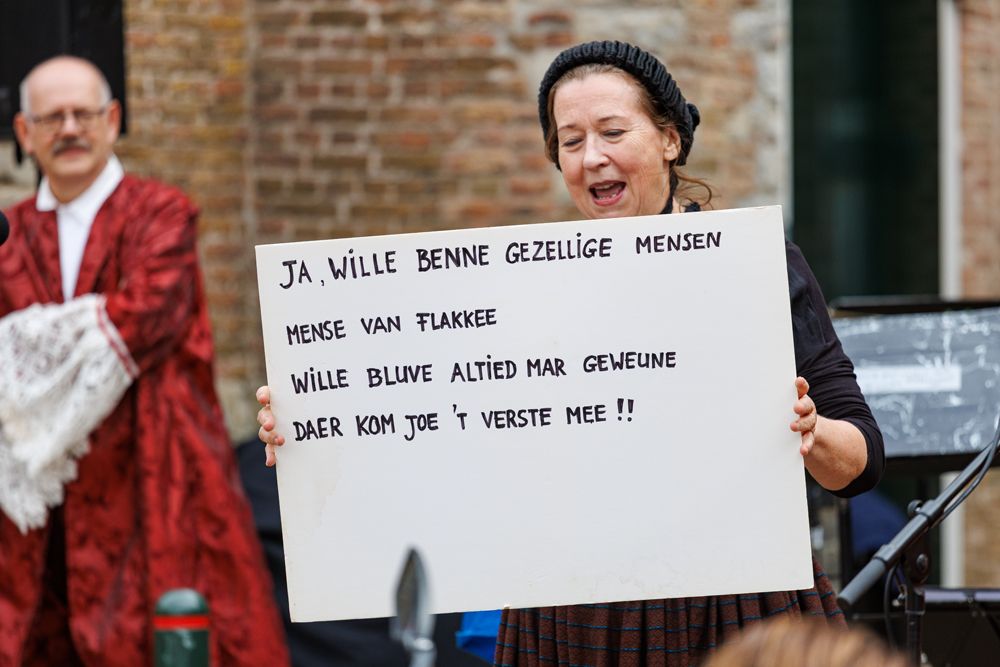 JA, WILLE BENNE GEZELLIGE MENSEN
MENSE VAN FLAKKEE
WILLE BLUVE ALTIED MAR GEWEUNE
DAER KOM JOE 'T VERSTE MEE !!